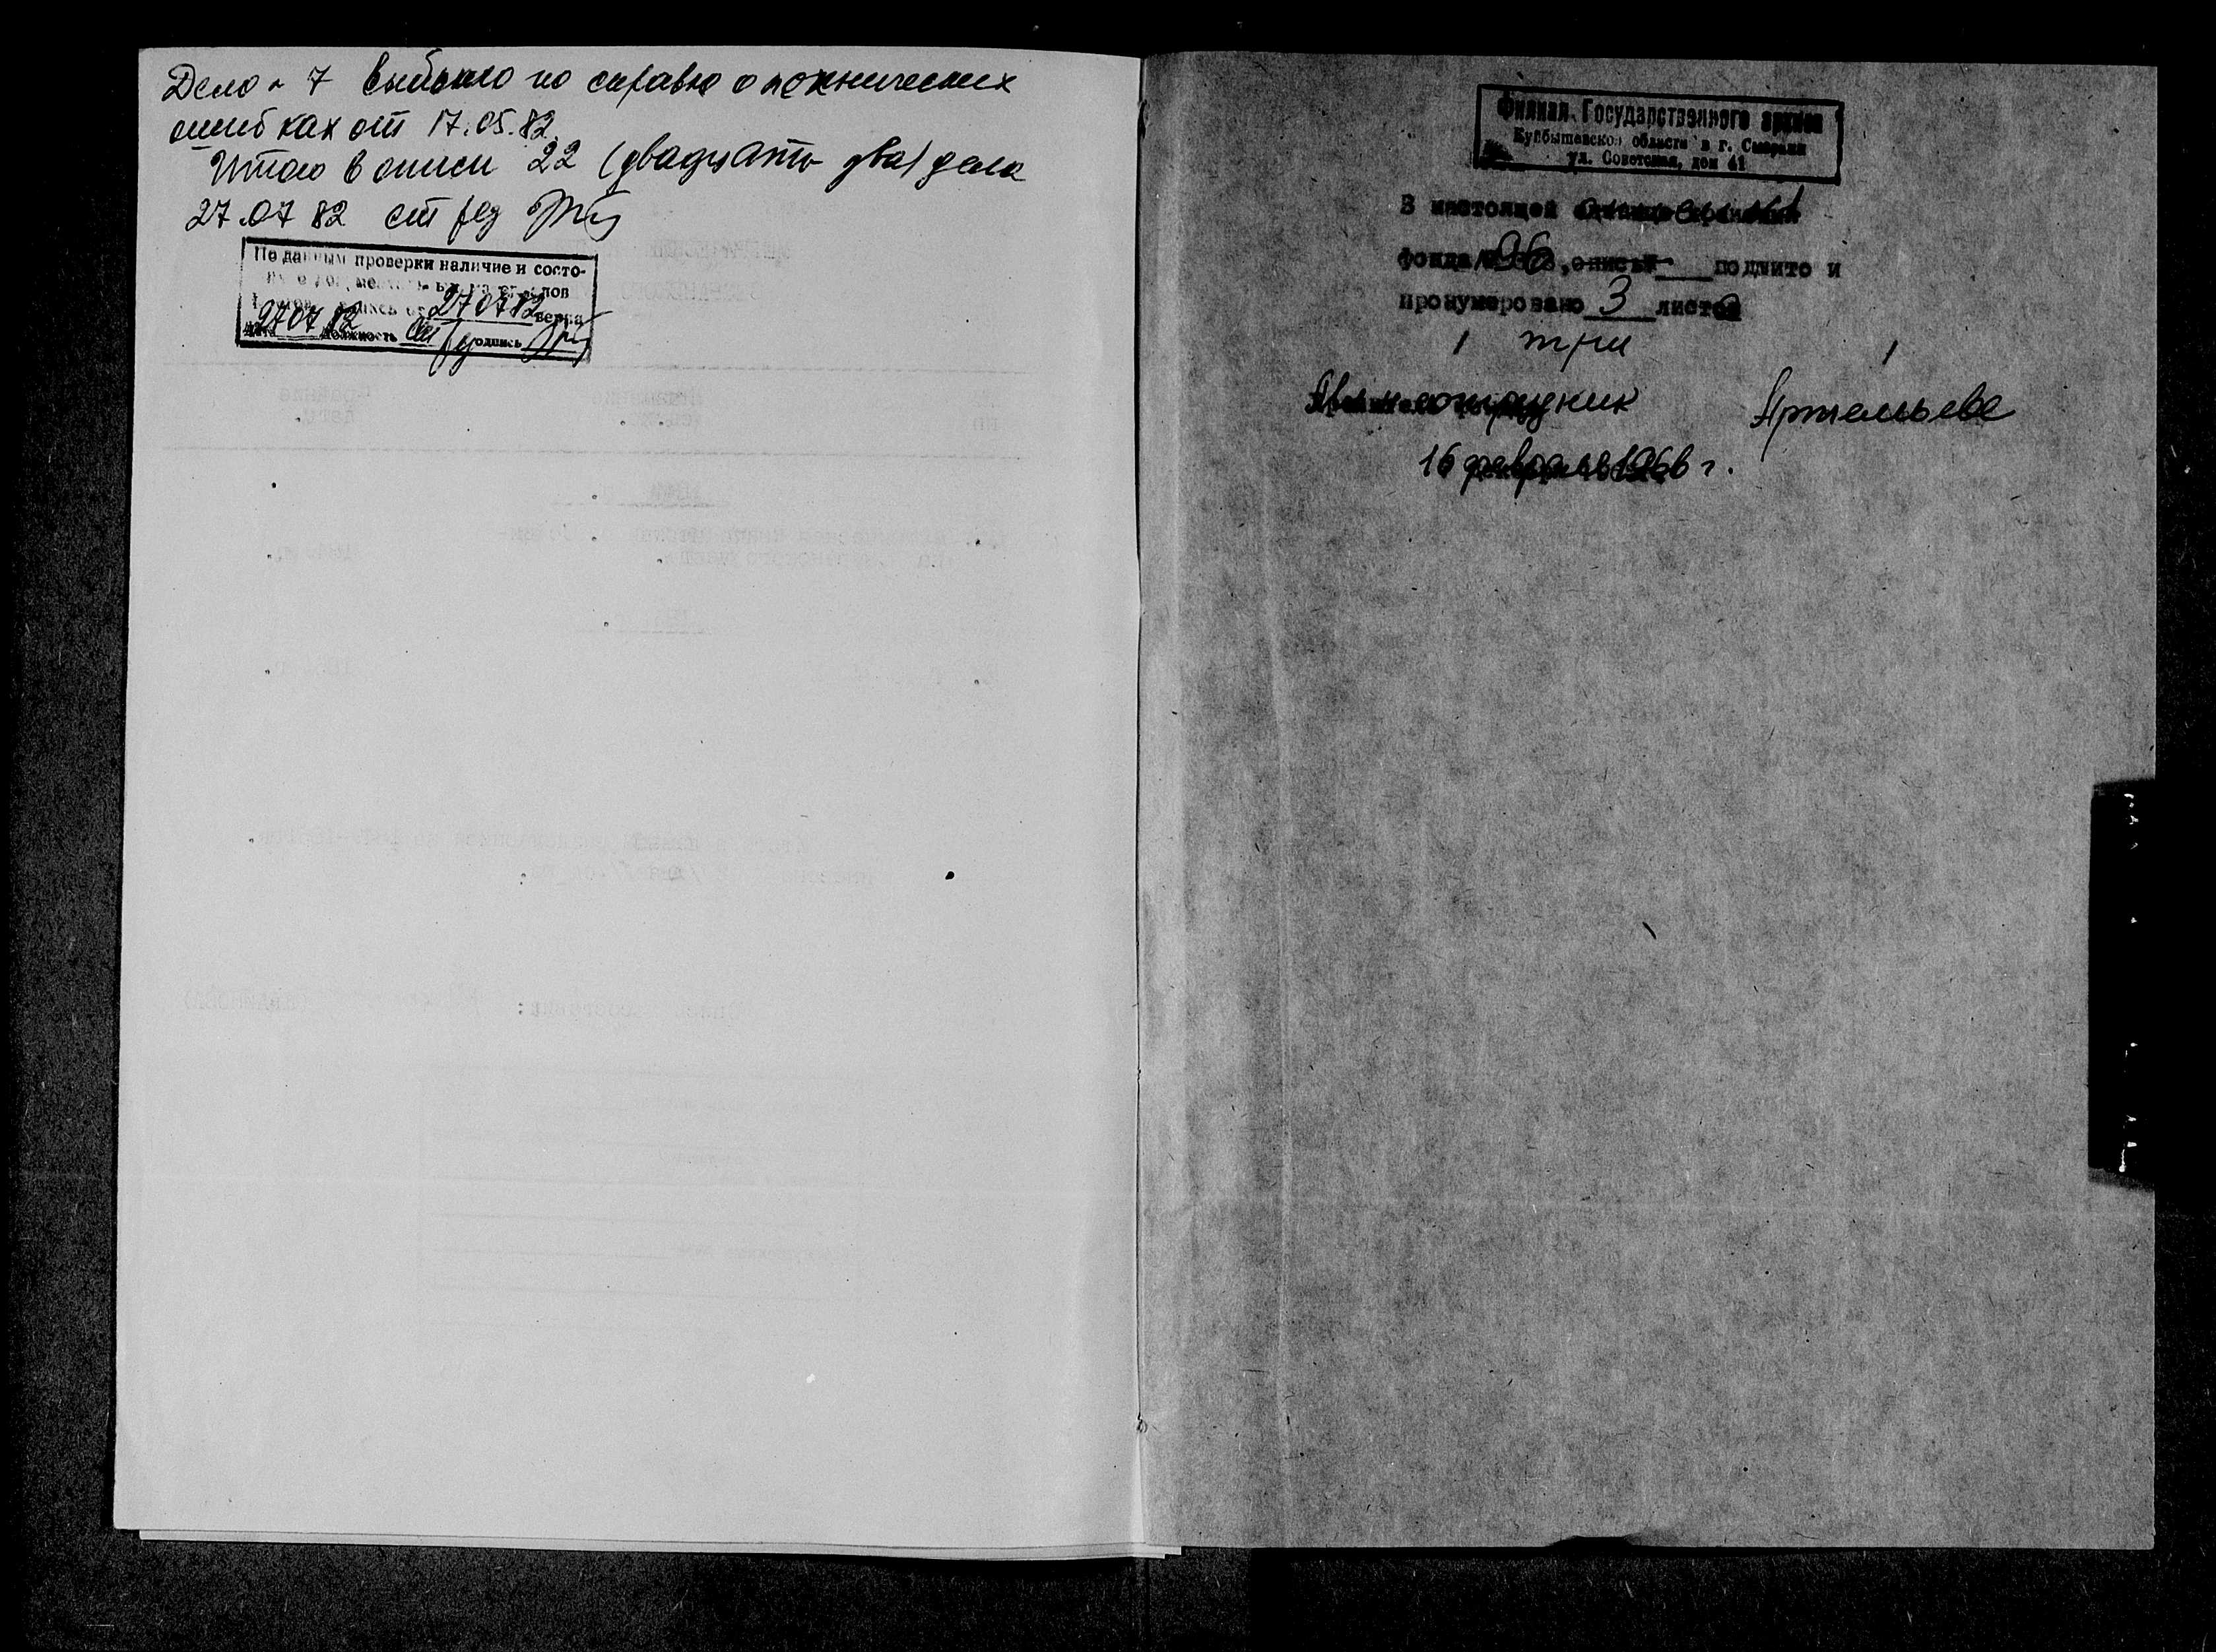 Дело № 7 выбыло по справке о технических
ошибках от 17.05.82.
Итого в описи 22 (двадцать два) дела
27.07 82 ст ред
По данным проверки наличие и состо-
27 07 82 верна
27 07 82 Должность ст ред подпись
Филиал Государственного архива
Куйбышевской области в г. Сызрани
ул. Советская, дом 41
В настоящей
фонда № 96, опись подшито и
пронумеровано 3 листа
/ три /
сотрудник Артемьева
16 февраля 1966 г.